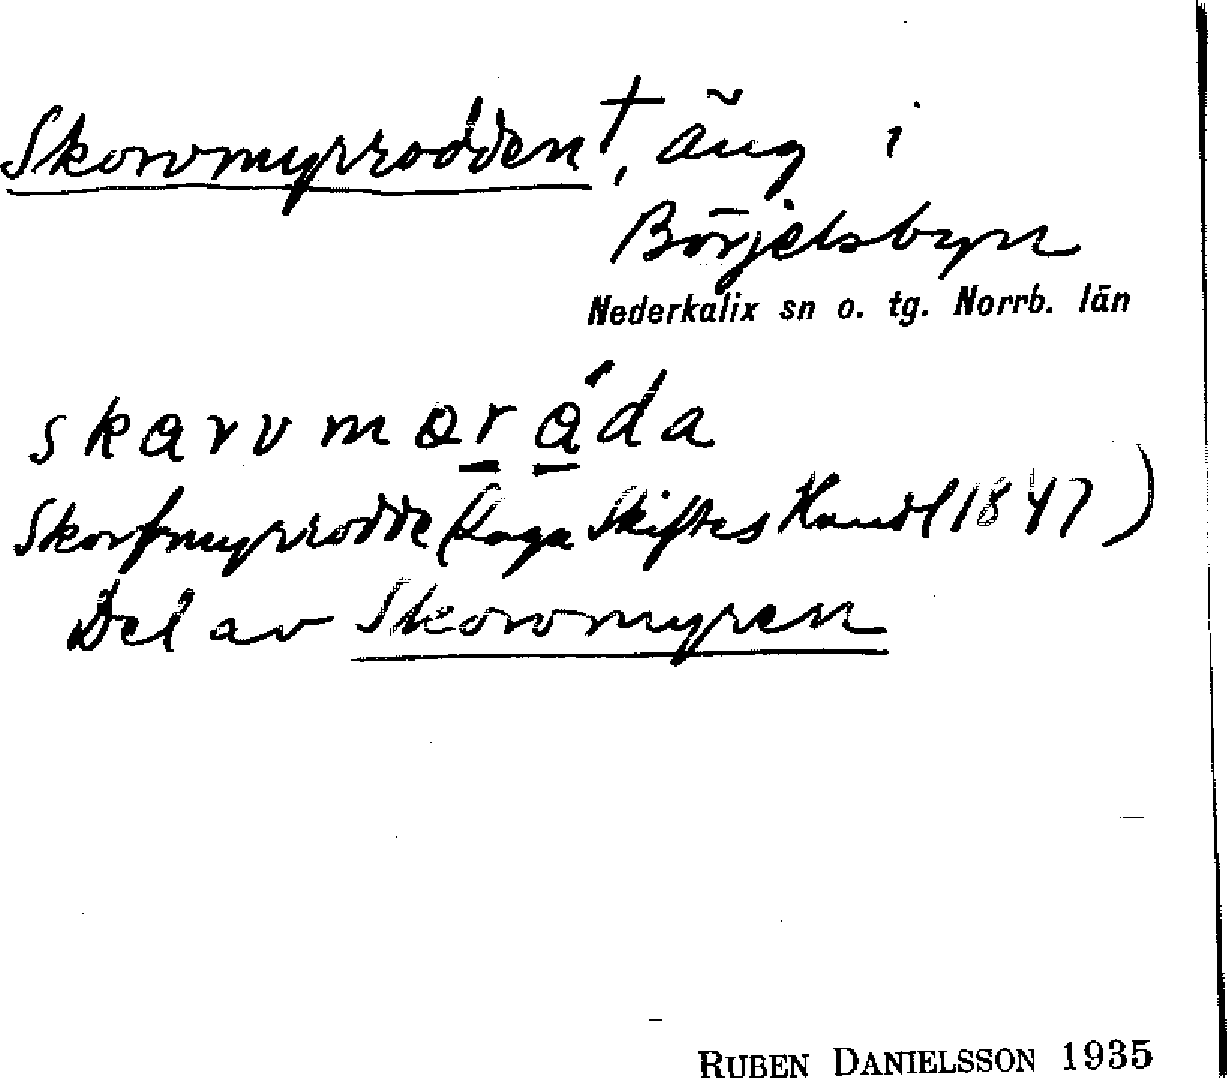 Skorvmyrrodden†, äng i
Börjelsbyn
Nederkalix sn o. tg. Norrb. län
skarvmaråda
Skorfmyrrodde (Laga Skiftes Handl 1847)
Del av Skorvmyren
RUBEN DANIELSSON 1935